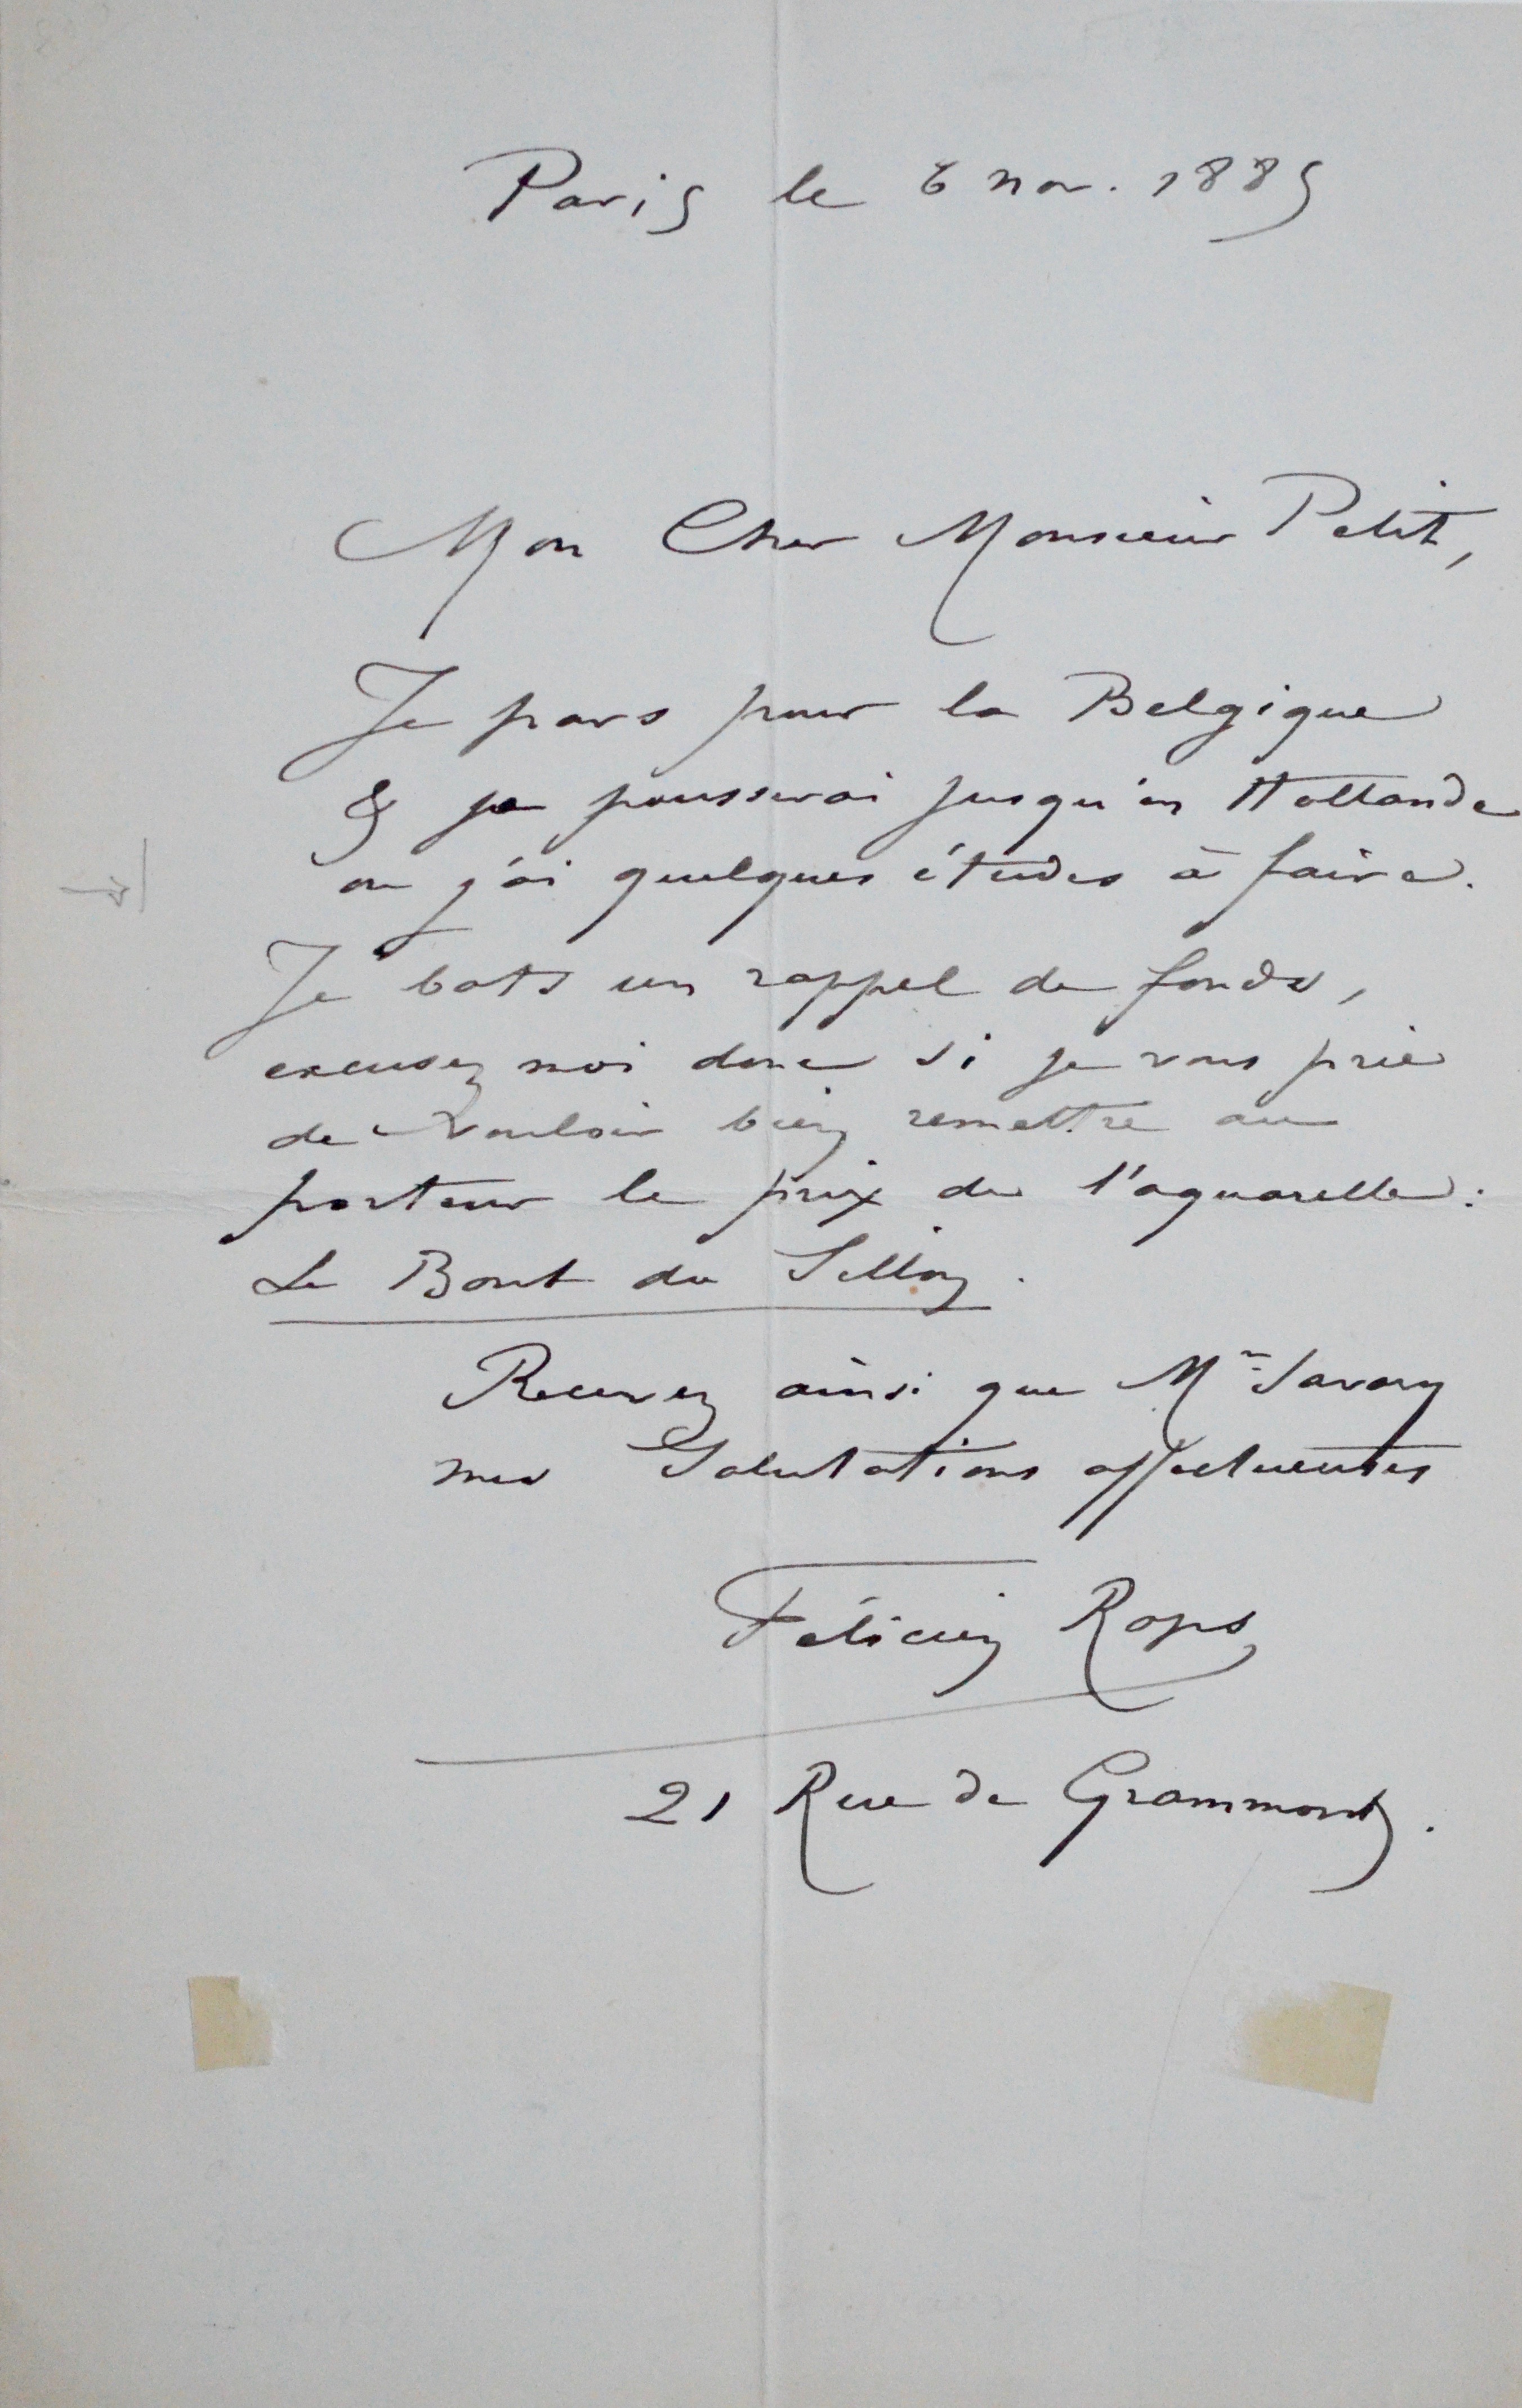 Paris le 6 nov. 1885
Mon Cher Monsieur Petit,
Je pars pour la Belgique
& je pousserai jusqu'en Hollande
ou j'ai quelques études à faire.
Je bats un rappel de fonds,
excusez moi donc si je vous prie
de vouloir bien remettre au
porteur le prix de l'aquarelle :
Le Bout du Sillon.
Recevez ainsi que Mr Savary
mes Salutations affectueuses
Félicien Rops
21 Rue de Grammont.